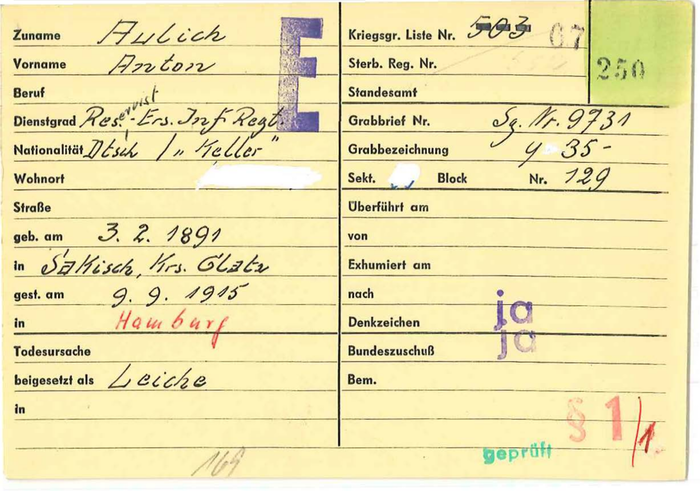 Zuname Aulich
Vorname Anton
Beruf
Dienstgrad Reservist - Ers. Inf. Regt.
Nationalität Dtsch / "Keller"
Wohnort
Straße
geb. am 3. 2. 1891
in Sakisch, Krs. Glatz
gest. am 9. 9. 1915
in Hamburg
Todesursache
beigesetzt als Leiche
in
169
E
Kriegsgr. Liste Nr. 503 07
250
Sterb. Reg. Nr.
Standesamt
Grabbrief Nr. Sg. Nr. 9731
Grabbezeichnung y 35-
Sekt. Block Nr. 129
Überführt am
von
Exhumiert am
nach
Denkzeichen ja
Bundeszuschuß ja
Bem.
§ 1/1.
geprüft